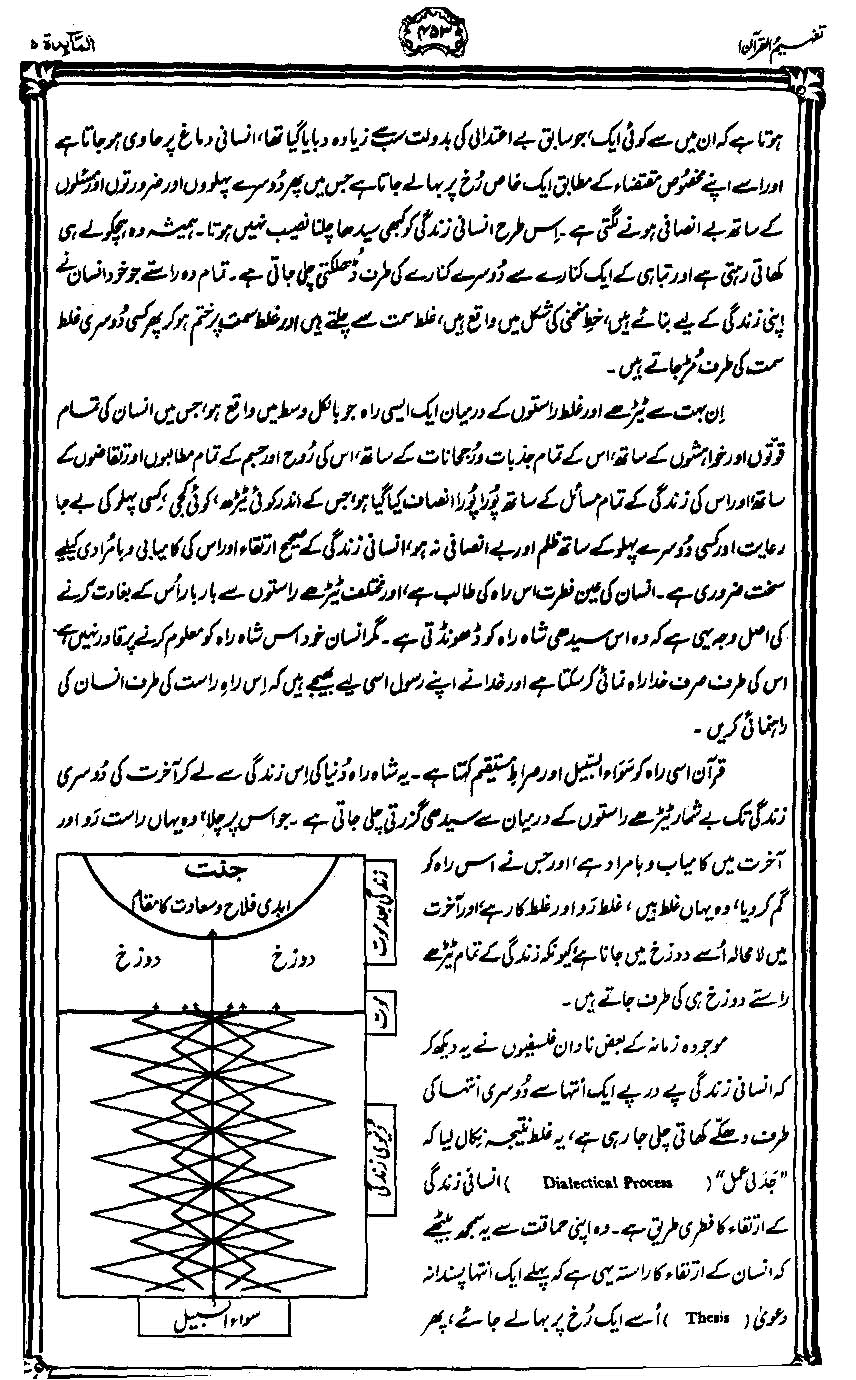 تفہیم القرآن ۱
۴۵۳
المآئدۃ ۵
ہوتا ہے کہ ان میں سے کوئی ایک، جو سابق بے اعتدالی کی بدولت سب سے زیادہ دبایا گیا تھا، انسانی دماغ پر حاوی ہو جاتا ہے
اور اسے اپنے مخصوص مقتضاء کے مطابق ایک خاص رُخ پر بہا لے جاتا ہے جس میں پھر دُوسرے پہلووں اور ضرورتوں اور مسئلوں
کے ساتھ بے انصافی ہونے لگتی ہے۔ اِس طرح انسانی زندگی کو کبھی سیدھا چلنا نصیب نہیں ہوتا۔ ہمیشہ وہ ہچکولے ہی
کھاتی رہتی ہے اور تباہی کے ایک کنارے سے دُوسرے کنارے کی طرف ڈھلکتی چلی جاتی ہے۔ تمام وہ راستے جو خود انسان نے
اپنی زندگی کے لیے بنائے ہیں، خطِ منحنی کی شکل میں واقع ہیں، غلط سمت سے چلتے ہیں اور غلط سمت پر ختم ہو کر پھر کسی دُوسری غلط
سمت کی طرف مُڑ جاتے ہیں۔
اِن بہت سے ٹیڑھے اور غلط راستوں کے درمیان ایک ایسی راہ جو بالکل وسط میں واقع ہو، جس میں انسان کی تمام
قوّتوں اور خواہشوں کے ساتھ، اس کے تمام جذبات و رُجحانات کے ساتھ، اس کی رُوح اور جسم کے تمام مطالبوں اور تقاضوں کے
ساتھ، اور اس کی زندگی کے تمام مسائل کے ساتھ پُورا پُورا انصاف کیا گیا ہو، جس کے اندر کوئی ٹیڑھ، کوئی کجی، کِسی پہلو کی بے جا
رعایت اور کسی دُوسرے پہلو کے ساتھ ظلم اور بے انصافی نہ ہو، انسانی زندگی کے صحیح ارتقاء اور اس کی کامیابی و بامُرادی کیلیے
سخت ضروری ہے۔ انسان کی عین فطرت اس راہ کی طالب ہے، اور مختلف ٹیڑھے راستوں سے بار بار اُس کے بغاوت کرنے
کی اصل وجہ یہی ہے کہ وہ اس سیدھی شاہ راہ کو ڈھونڈتی ہے۔ مگر انسان خود اس شاہ راہ کو معلوم کرنے پر قادر نہیں ہے
اس کی طرف صرف خدا راہ نمائی کر سکتا ہے اور خدا نے اپنے رسول اسی لیے بھیجے ہیں کہ اِس راہِ راست کی طرف انسان کی
راہنمائی کریں۔
قرآن اسی راہ کو سَوَاء السَّبِیل اور صراطِ مُستقیم کہتا ہے۔ یہ شاہ راہ دُنیا کی اِس زندگی سے لے کر آخرت کی دُوسری
زندگی تک بے شمار ٹیڑھے راستوں کے درمیان سے سیدھی گزرتی چلی جاتی ہے۔ جو اس پر چلا، وہ یہاں راست رَو اور
آخرت میں کامیاب و بامراد ہے، اور جس نے اس راہ کو
گم کر دیا، وہ یہاں غلط بیں، غلط رَو اور غلط کار ہے، اور آخرت
میں لامحالہ اُسے دوزخ میں جانا ہے کیونکہ زندگی کے تمام ٹیڑھے
راستے دوزخ ہی کی طرف جاتے ہیں۔
موجودہ زمانہ کے بعض نادان فلسفیوں نے یہ دیکھ کر
کہ انسانی زندگی پے در پے ایک اُنتہا سے دُوسری اُنتہا کی
طرف دھکّے کھاتی چلی جا رہی ہے، یہ غلط نتیجہ نِکال لیا کہ
”جَدَلی عمل“ (Dialectical Process) انسانی زندگی
کے ارتقاء کا فطری طریق ہے۔ وہ اپنی حماقت سے یہ سمجھ بیٹھے
کہ انسان کے ارتقاء کا راستہ یہی ہے کہ پہلے ایک انتہا پسندانہ
دعویٰ (Thesis) اُسے ایک رُخ پر بہا لے جائے، پھر
جنت
ابدی فلاح و سعادت کا مقام
دوزخ
دوزخ
زندگی بعد موت
موت
دُنیوی زندگی
سواء السبیل